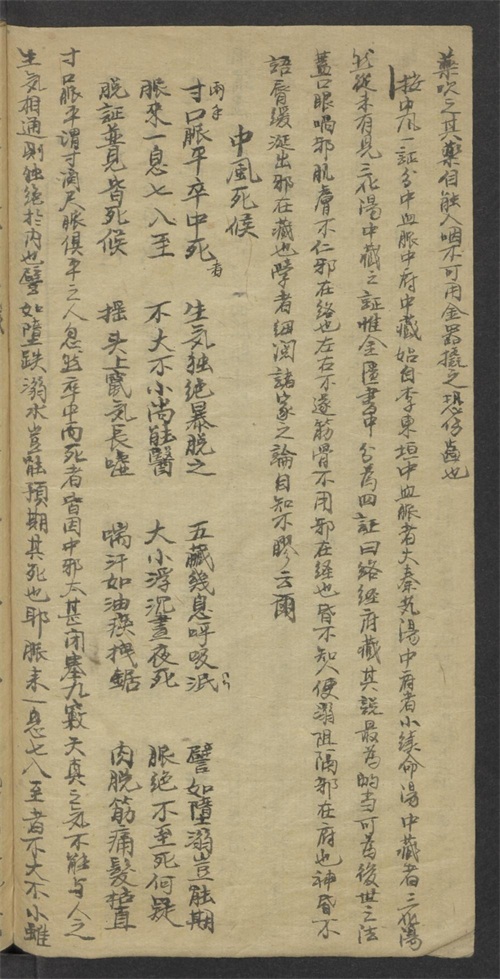 藥吹之其藥自能入咽不可用金器撬之恐傷齒也
按中風一証分中血脈中府中藏始自李東垣中血脈者大秦艽湯中府者小續命湯中藏者三化湯
然從未有見三化湯中藏之証惟金匱書中分為四証曰絡經府藏其說最為的當可為後世之法
蓋口眼喎邪肌膚不仁邪在絡也左右不遂筋骨不用邪在經也昏不知人便溺阻隔邪在府也神昏不
語唇緩涎出邪在藏也學者細閱諸家之論自知不膠云爾
中風死候
兩手
寸口脈平卒中死者 生氣独絶暴脱之 五藏幾息呼吸泯 譬如墮溺豈能期
脈來一息七八至 不大不小尚能醫 大小浮沉晝夜死 脈絶不至死何疑
脱証並見皆死候 摇头上竄氣長噓 喘汗如油痰拽鋸 肉脱筋痛髮枯直
寸口脈平謂寸関尺脈俱平之人忽然卒中而死者皆因中邪太甚閉塞九竅天真之氣不能与人之
生氣相通則独絶於内也譬如墮跌溺水豈能預期其死也耶脈來一息七八至者不大不小雖